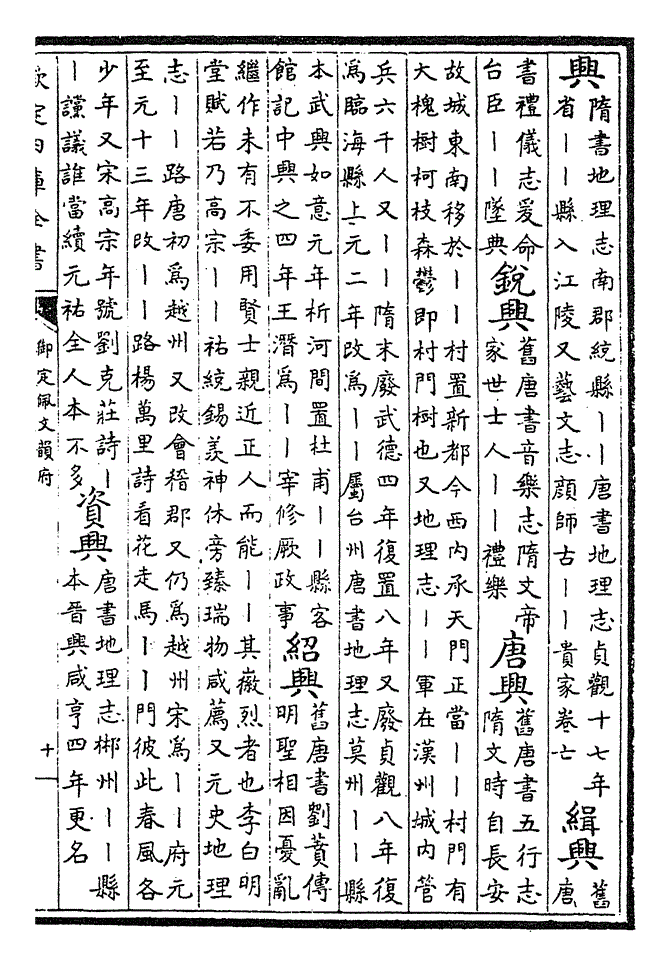 興隋書地理志南郡統縣丨丨唐書地理志貞觀十七年
省丨丨縣入江陵又藝文志顔師古丨丨貴家卷七
緝興舊
唐
書禮儀志爰命
台臣丨丨墜典
銳興舊唐書音樂志隋文帝
家世士人丨丨禮樂
唐興舊唐書五行志
隋文時自長安
故城東南移於丨丨村置新都今西内承天門正當丨丨村門有
大槐樹柯枝森鬱即村門樹也又地理志丨丨軍在漢州城内管
兵六千人又丨丨隋末廢武德四年復置八年又廢貞觀八年復
爲臨海縣上元二年改爲丨丨屬台州唐書地理志莫州丨丨縣
本武興如意元年析河間置杜甫丨丨縣客
館記中興之四年王潛爲丨丨宰修厥政事
紹興舊唐書劉蕡傳
明聖相因憂亂
繼作未有不委用賢士親近正人而能丨丨其徽烈者也李白明
堂賦若乃高宗丨丨祐統錫羨神休旁臻瑞物咸薦又元史地理
志丨丨路唐初爲越州又改會稽郡又仍爲越州宋爲丨丨府元
至元十三年改丨丨路楊萬里詩看花走馬丨丨門彼此春風各
少年又宋高宗年號劉克莊詩丨
丨讜議誰當續元祐全人本不多
資興唐書地理志郴州丨丨縣
本晉興咸亨四年更名
欽定四庫全書
御定佩文韻府
十